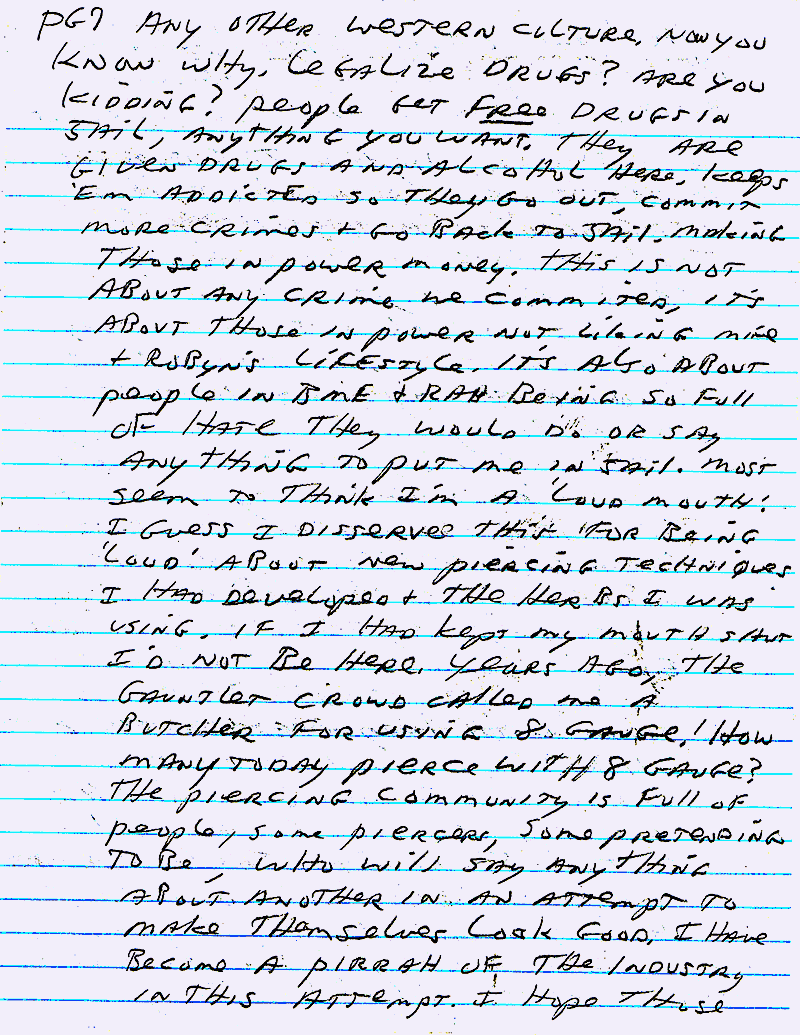 PG7 ANY OTHER WESTERN CULTURE, NOW YOU
KNOW WHY. LEGALIZE DRUGS? ARE YOU
KIDDING? people GET FREE DRUGS IN
JAIL, ANYTHING YOU WANT. THEY ARE
GIVEN DRUGS AND ALCOHOL HERE, keeps
'Em ADDICTED SO THEY GO OUT, COMMIT
MORE CRIMES + GO BACK TO JAIL. MAKING
THOSE IN POWER MONEY. THIS IS NOT
ABOUT ANY CRIME WE COMMITED, IT'S
ABOUT THOSE IN POWER NOT LIKING MINE
+ ROBYN'S LIFESTYLE. IT'S ALSO ABOUT
people IN BME + RAH BEING SO FULL
OF HATE THEY WOULD DO OR SAY
ANYTHING TO PUT ME IN JAIL. MOST
SEEM TO THINK I'M A 'LOUD MOUTH'.
I GUESS I DISSERVE THIS FOR BEING
'LOUD' ABOUT NEW PIERCING TECHNIQUES
I HAD DEVELOPED + THE HERBS I WAS
USING. IF I HAD KEPT MY MOUTH SHUT
I'D NOT BE HERE. YEARS AGO, THE
GAUNTLET CROWD CALLED ME A
BUTCHER FOR USING 8 GAUGE! HOW
MANY TODAY PIERCE WITH 8 GAUGE?
THE PIERCING COMMUNITY IS FULL OF
people, SOME PIERCERS, SOME PRETENDING
TO BE, WHO WILL SAY ANYTHING
ABOUT ANOTHER IN AN ATTEMPT TO
MAKE THEMSELVES LOOK GOOD. I HAVE
BECOME A PIRRAH OF THE INDUSTRY
IN THIS ATTEMPT. I HOPE THOSE